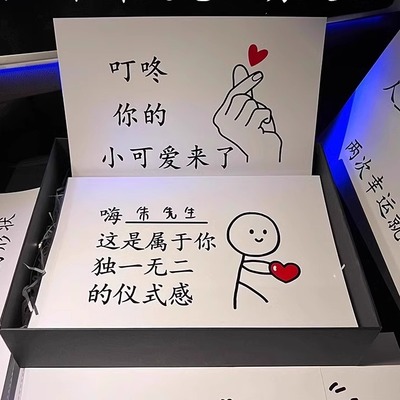 叮咚
你的
小可爱来了
嗨 朱先生
这是属于你
独一无二
的仪式感
两次幸运就
人
状